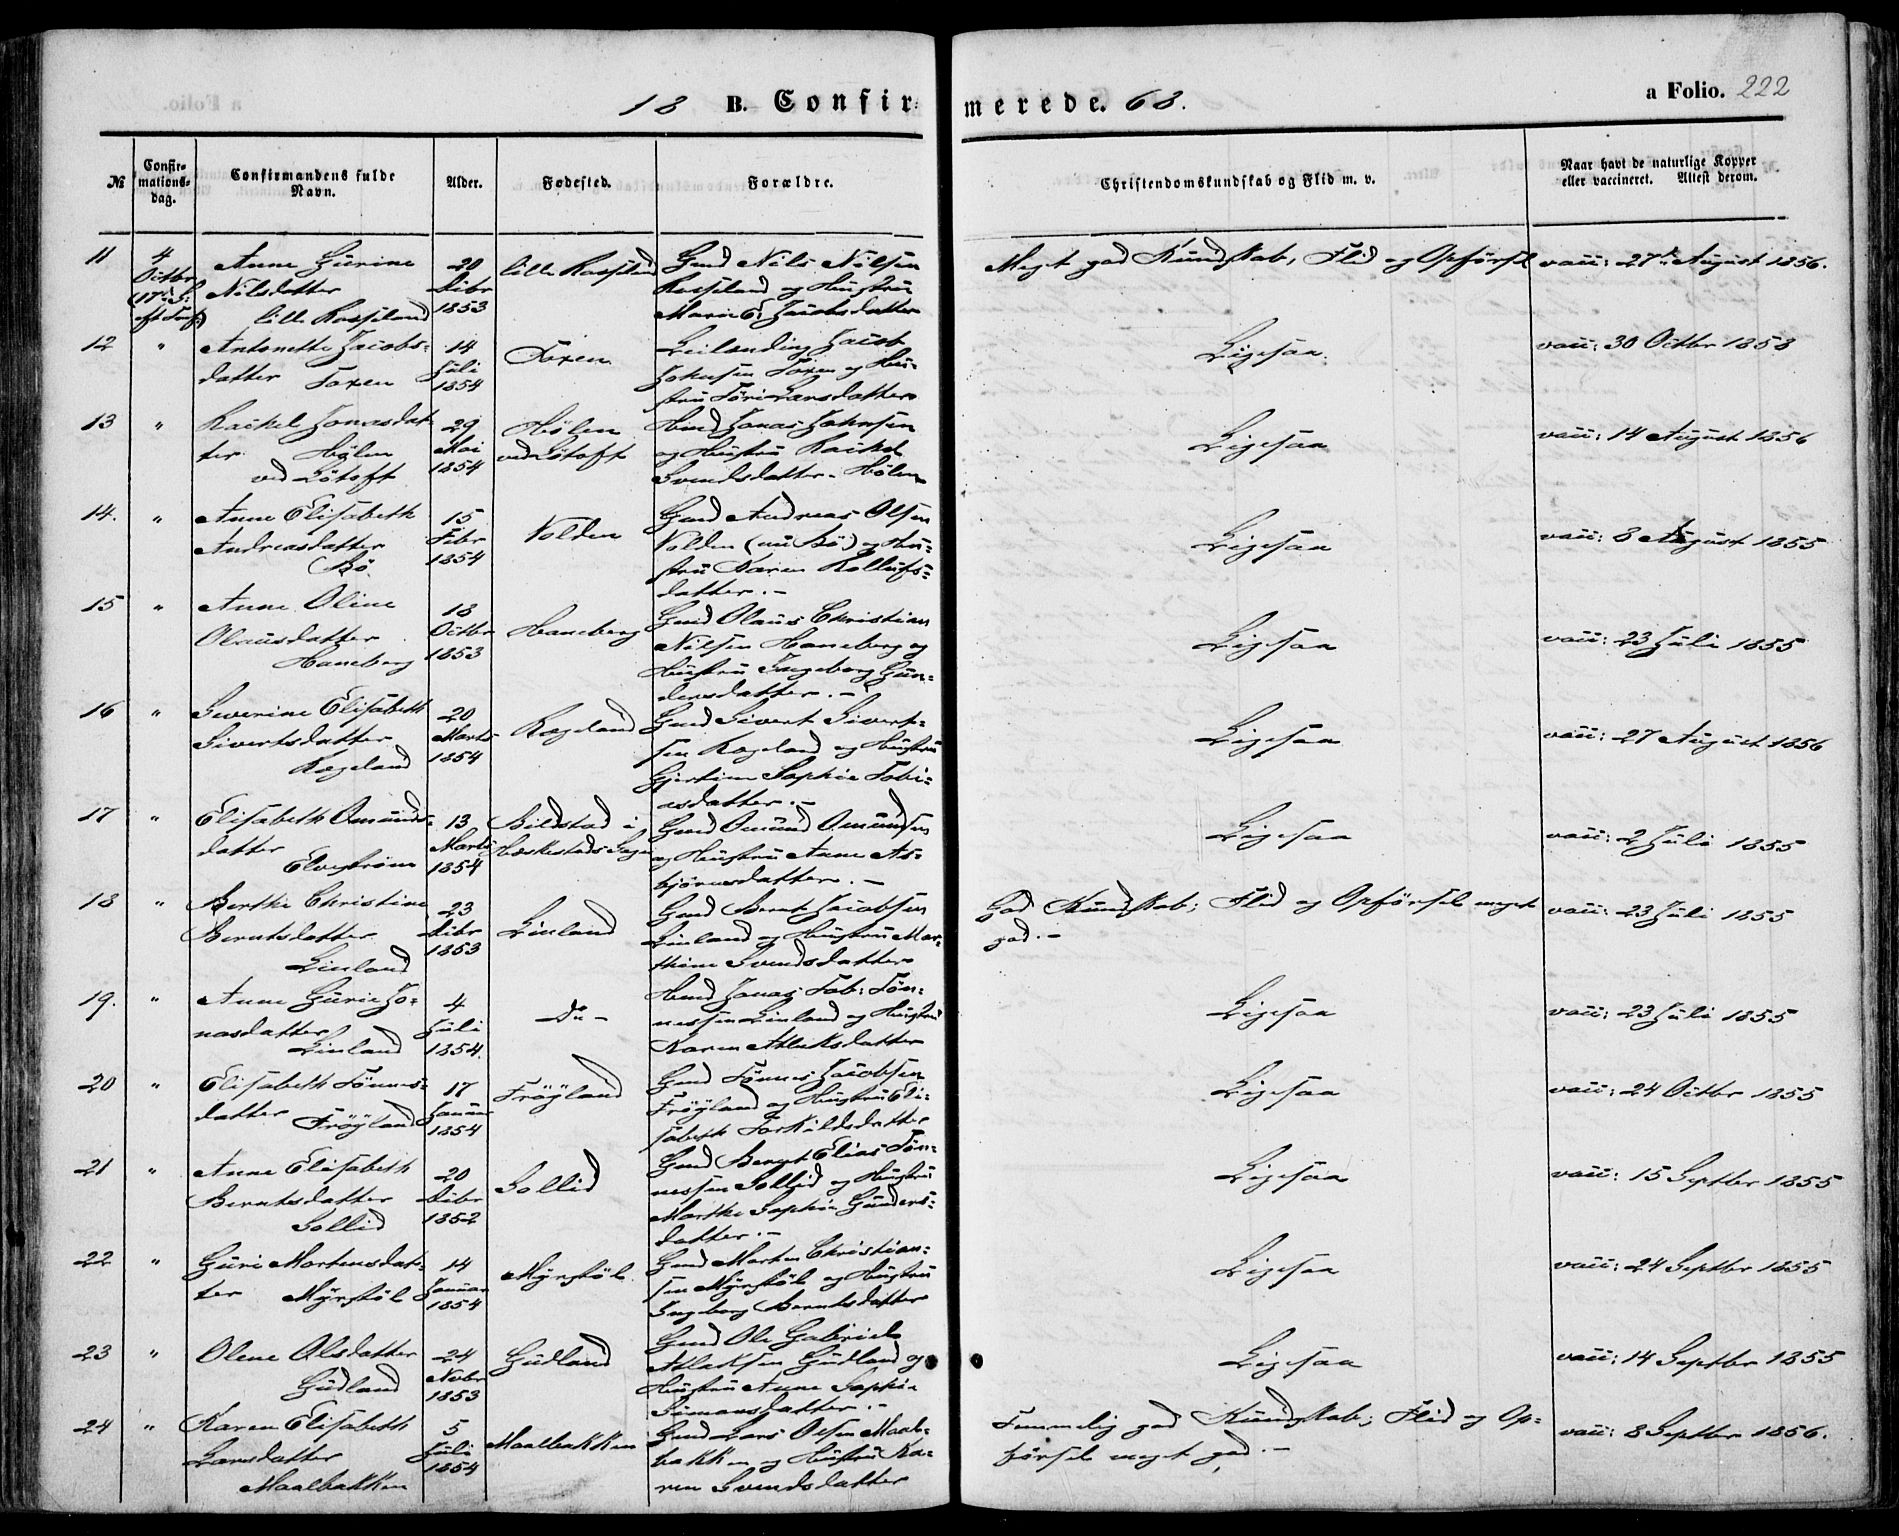 18 B. Confirmerede. 68.
a Folio. 222
№
Confirmations-dag.
Confirmandens fulde Navn.
Alder.
Fødested.
Forældre.
Christendomskundskab og Flid m. v.
Naar havt de naturlige Kopper eller vaccineret. Attest derom.
11 4 Octbr (17de S. eft Tref) Anne Gurine Nilsdatter lille Rosseland 20 Dcbr 1853 lille Rosseland Gmd Nils Nilsen Rosseland og Hustru Marie E. Jacobsdatter Meget god Kundskab, Flid og Opførsel vacc: 27de August 1856.
12 " Antonette Jacobsdatter Foxen 14 Juli 1854 Foxen Leilænding Jacob Johnsen Foxen og Hustru Tøri Larsdatter Ligesaa. vacc: 30 Octbr 1858
13 " Rackel Jonasdatter Hølen ved Løtoft 29 Mai 1854 Hølen ved Løtoft Hmd Jonas Johnsen og Hustru Rackel Svendsdatter Hølen Ligesaa vacc: 14 August 1856
14. " Anne Elisabeth Andreasdatter Bø 15 Febr 1854 Volden Gmd Andreas Olsen Volden (nu Bø) og Hustru Karen Rollufsdatter.- Ligesaa vacc: 8 August 1855
15 " Anne Oline Olausdatter Haneberg 18 Octbr 1853 Haneberg Gmd Olaus Christian Nilsen Haneberg og Hustru Ingeborg Gundersdatter.- Ligesaa vacc: 23 Juli 1855
16 " Severine Elisabeth Sivertsdatter Rageland 20 Marts 1854 Rageland Gmd Sivert Sivertsen Rageland og Hustru Gjertine Sophie Tobiasdatter.- Ligesaa vacc: 27 August 1856
17 " Elisabeth Omundsdatter Elvestrøm 13 Marts 1854 Bilstad i Heskestads Sogn Gmd Omund Omundsen og Hustru Anne Asbjørnsdatter.- Ligesaa vacc: 2 Juli 1855
18 " Berthe Christine Berntsdatter Linland 23 Dcbr 1853 Linland Gmd Bernt Jacobsen Linland og Hustru Marthine Svendsdatter God Kundskab; Flid og Opførsel meget god.- vacc: 23 Juli 1855
19. " Anne Gurie Jonasdatter Linland 4 Juli 1854. Do- Hmd Jonas Tob: Tønnessen Linland og Hustru Karen Atlaksdatter Ligesaa vacc: 23 Juli 1855
20 " Elisabeth Tønnesdatter Frøyland 17 Januar 1854 Frøyland Gmd Tønnes Jacobsen Frøyland og Hustru Elisabeth Torkildsdatter Ligesaa vacc: 24 Octbr 1855
21 " Anne Elisabeth Berntsdatter Sollid 20 Dcbr 1852 Sollid Gmd Bernt Elias Tønnessen Sollid og Hustru Marthe Sophie Gundersdatter.- Ligesaa vacc: 15 Septbr 1855
22 " Guri Mortensdatter Myrstøl 14 Januar 1854 Myrstøl Gmd Morten Christiansen Myrstøl og Hustru Ingeborg Berntsdatter Ligesaa vacc: 24 Septbr 1855
23 " Olene Olsdatter Gudland 24 Nvbr 1853 Gudland Gmd Ole Gabriel Atlaksen Gudland og Hustru Anne Sophie Simonsdatter.- Ligesaa vacc: 14 Septbr 1855
24 " Karen Elisabeth Larsdatter Maalbakken 5 Juli 1854 Maalbakken Gmd Lars Olsen Maalbakken og Hustru Karen Svendsdatter Temmelig god Kundskab; Flid og Opførsel meget god.- vacc: 8 Septbr 1856.